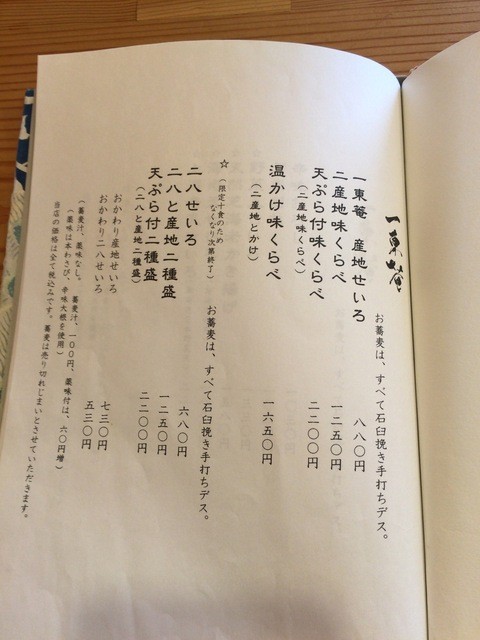 一東菴
お蕎麦は、すべて石臼挽き手打ちデス。
一東菴 産地せいろ 八八〇円
二産地味くらべ 一二五〇円
天ぷら付味くらべ 二二〇〇円
(二産地味くらべ)
温かけ味くらべ 一六五〇円
(二産地とかけ)
☆
(限定十食のため
なくなり次第終了)
お蕎麦は、すべて石臼挽き手打ちデス。
二八せいろ 六八〇円
二八と産地二種盛 一二五〇円
天ぷら付二種盛 二二〇〇円
(二八と産地二種盛)
おかわり産地せいろ 七三〇円
おかわり二八せいろ 五三〇円
(蕎麦汁、薬味なし。 蕎麦汁、一〇〇円、薬味付は、六〇円増)
(薬味は本わさび、辛味大根を使用)
当店の価格は全て税込みです。蕎麦は売り切れじまいとさせていただきます。